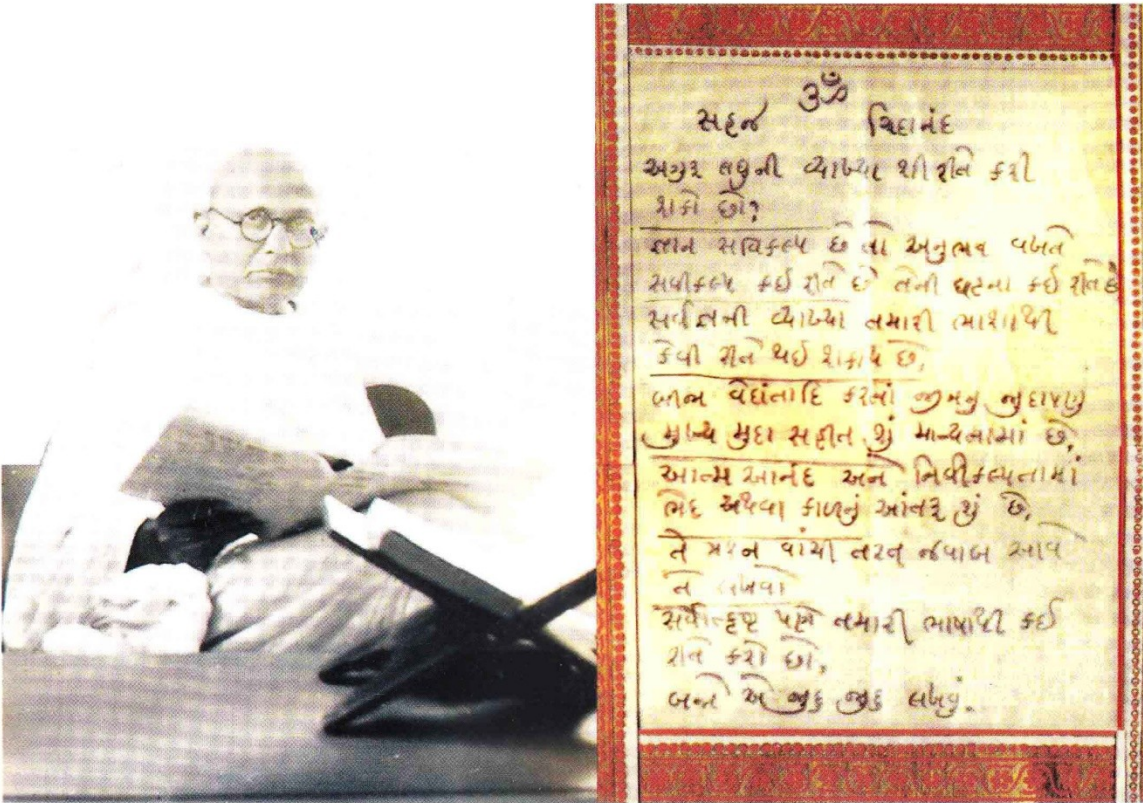 ૐ
સહજ ચિદાનંદ
અગુરુ લઘુની વ્યાખ્યા શી રીતે કરી
શકો છો?
જ્ઞાન સવિકલ્પ છે તો અનુભવ વખતે
સવીકલ્પ કઈ રીતે છે તેની ઘટના કઈ રીતે છે
સર્વજ્ઞની વ્યાખ્યા તમારી ભાશાથી
કેવી રીતે થઈ શકાય છે,
બીજા વેદાંતાદિ કરતાં જીનનુ જુદાપણુ
મુખ્ય મુદા સહીત શું માન્યતામાં છે,
આત્મ આનંદ અને નિર્વીકલ્પતામાં
ભેદ અથવા કાળનું આંતરૂ શું છે,
તે પ્રશ્ન વાંચી તરત જવાબ આવે
તે લખવો
સર્વોત્કૃષ્ટ પણે તમારી ભાષાથી કઈ
રીતે કરો છો,
બન્ને એ જુદુ જુદુ લખવું.